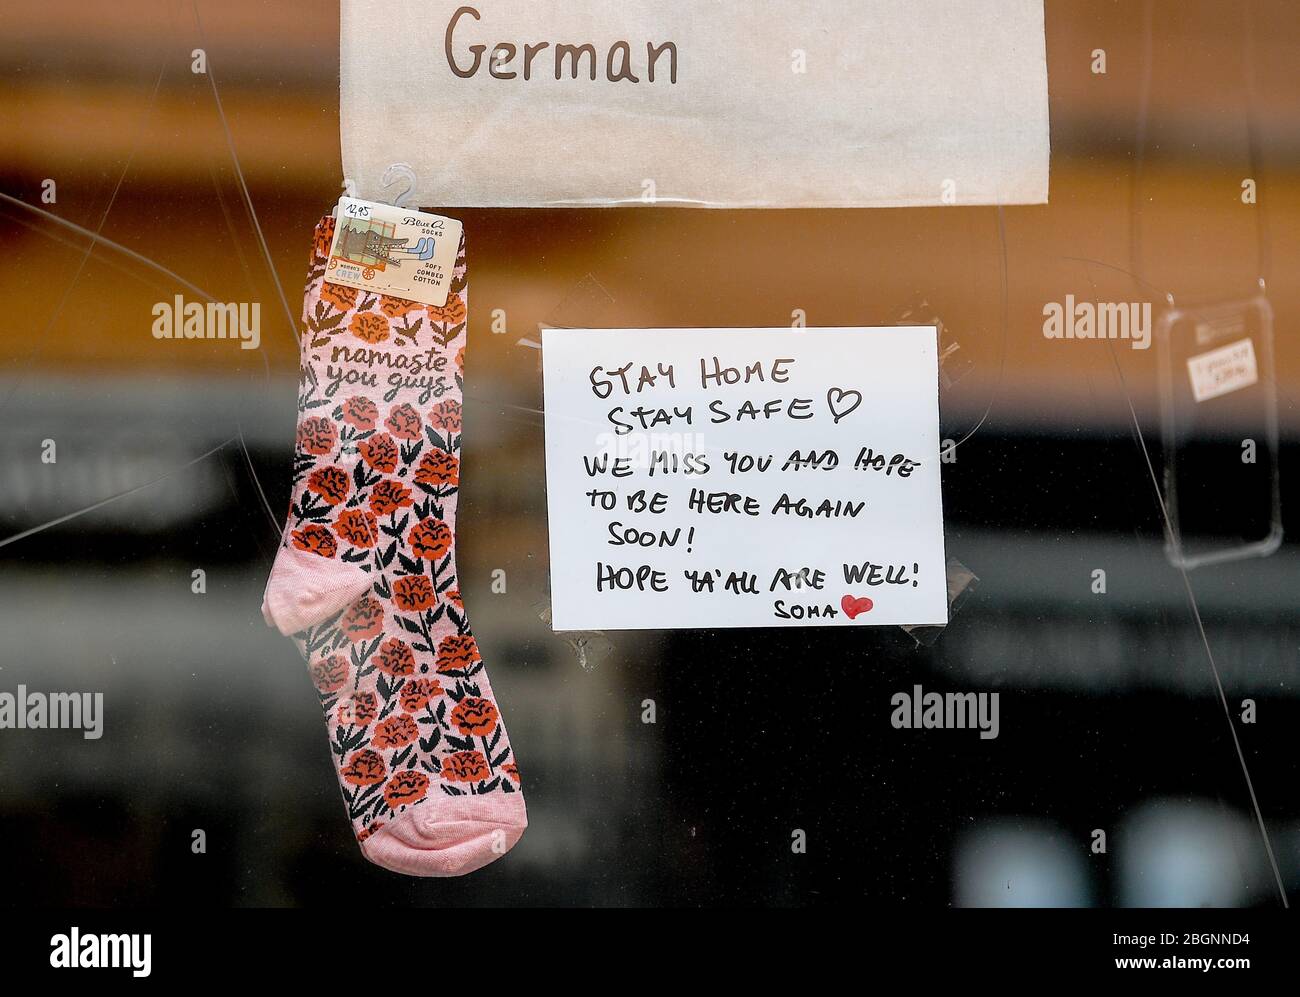 German
12,95
Blue Q
SOCKS
SOFT
COMBED
COTTON
women's
CREW
namaste
you guys
STAY HOME
STAY SAFE
WE MISS YOU AND HOPE
TO BE HERE AGAIN
SOON!
HOPE YA'ALL ARE WELL!
SOMA
alamy
alamy
Image ID: 2BGNND4
www.alamy.com